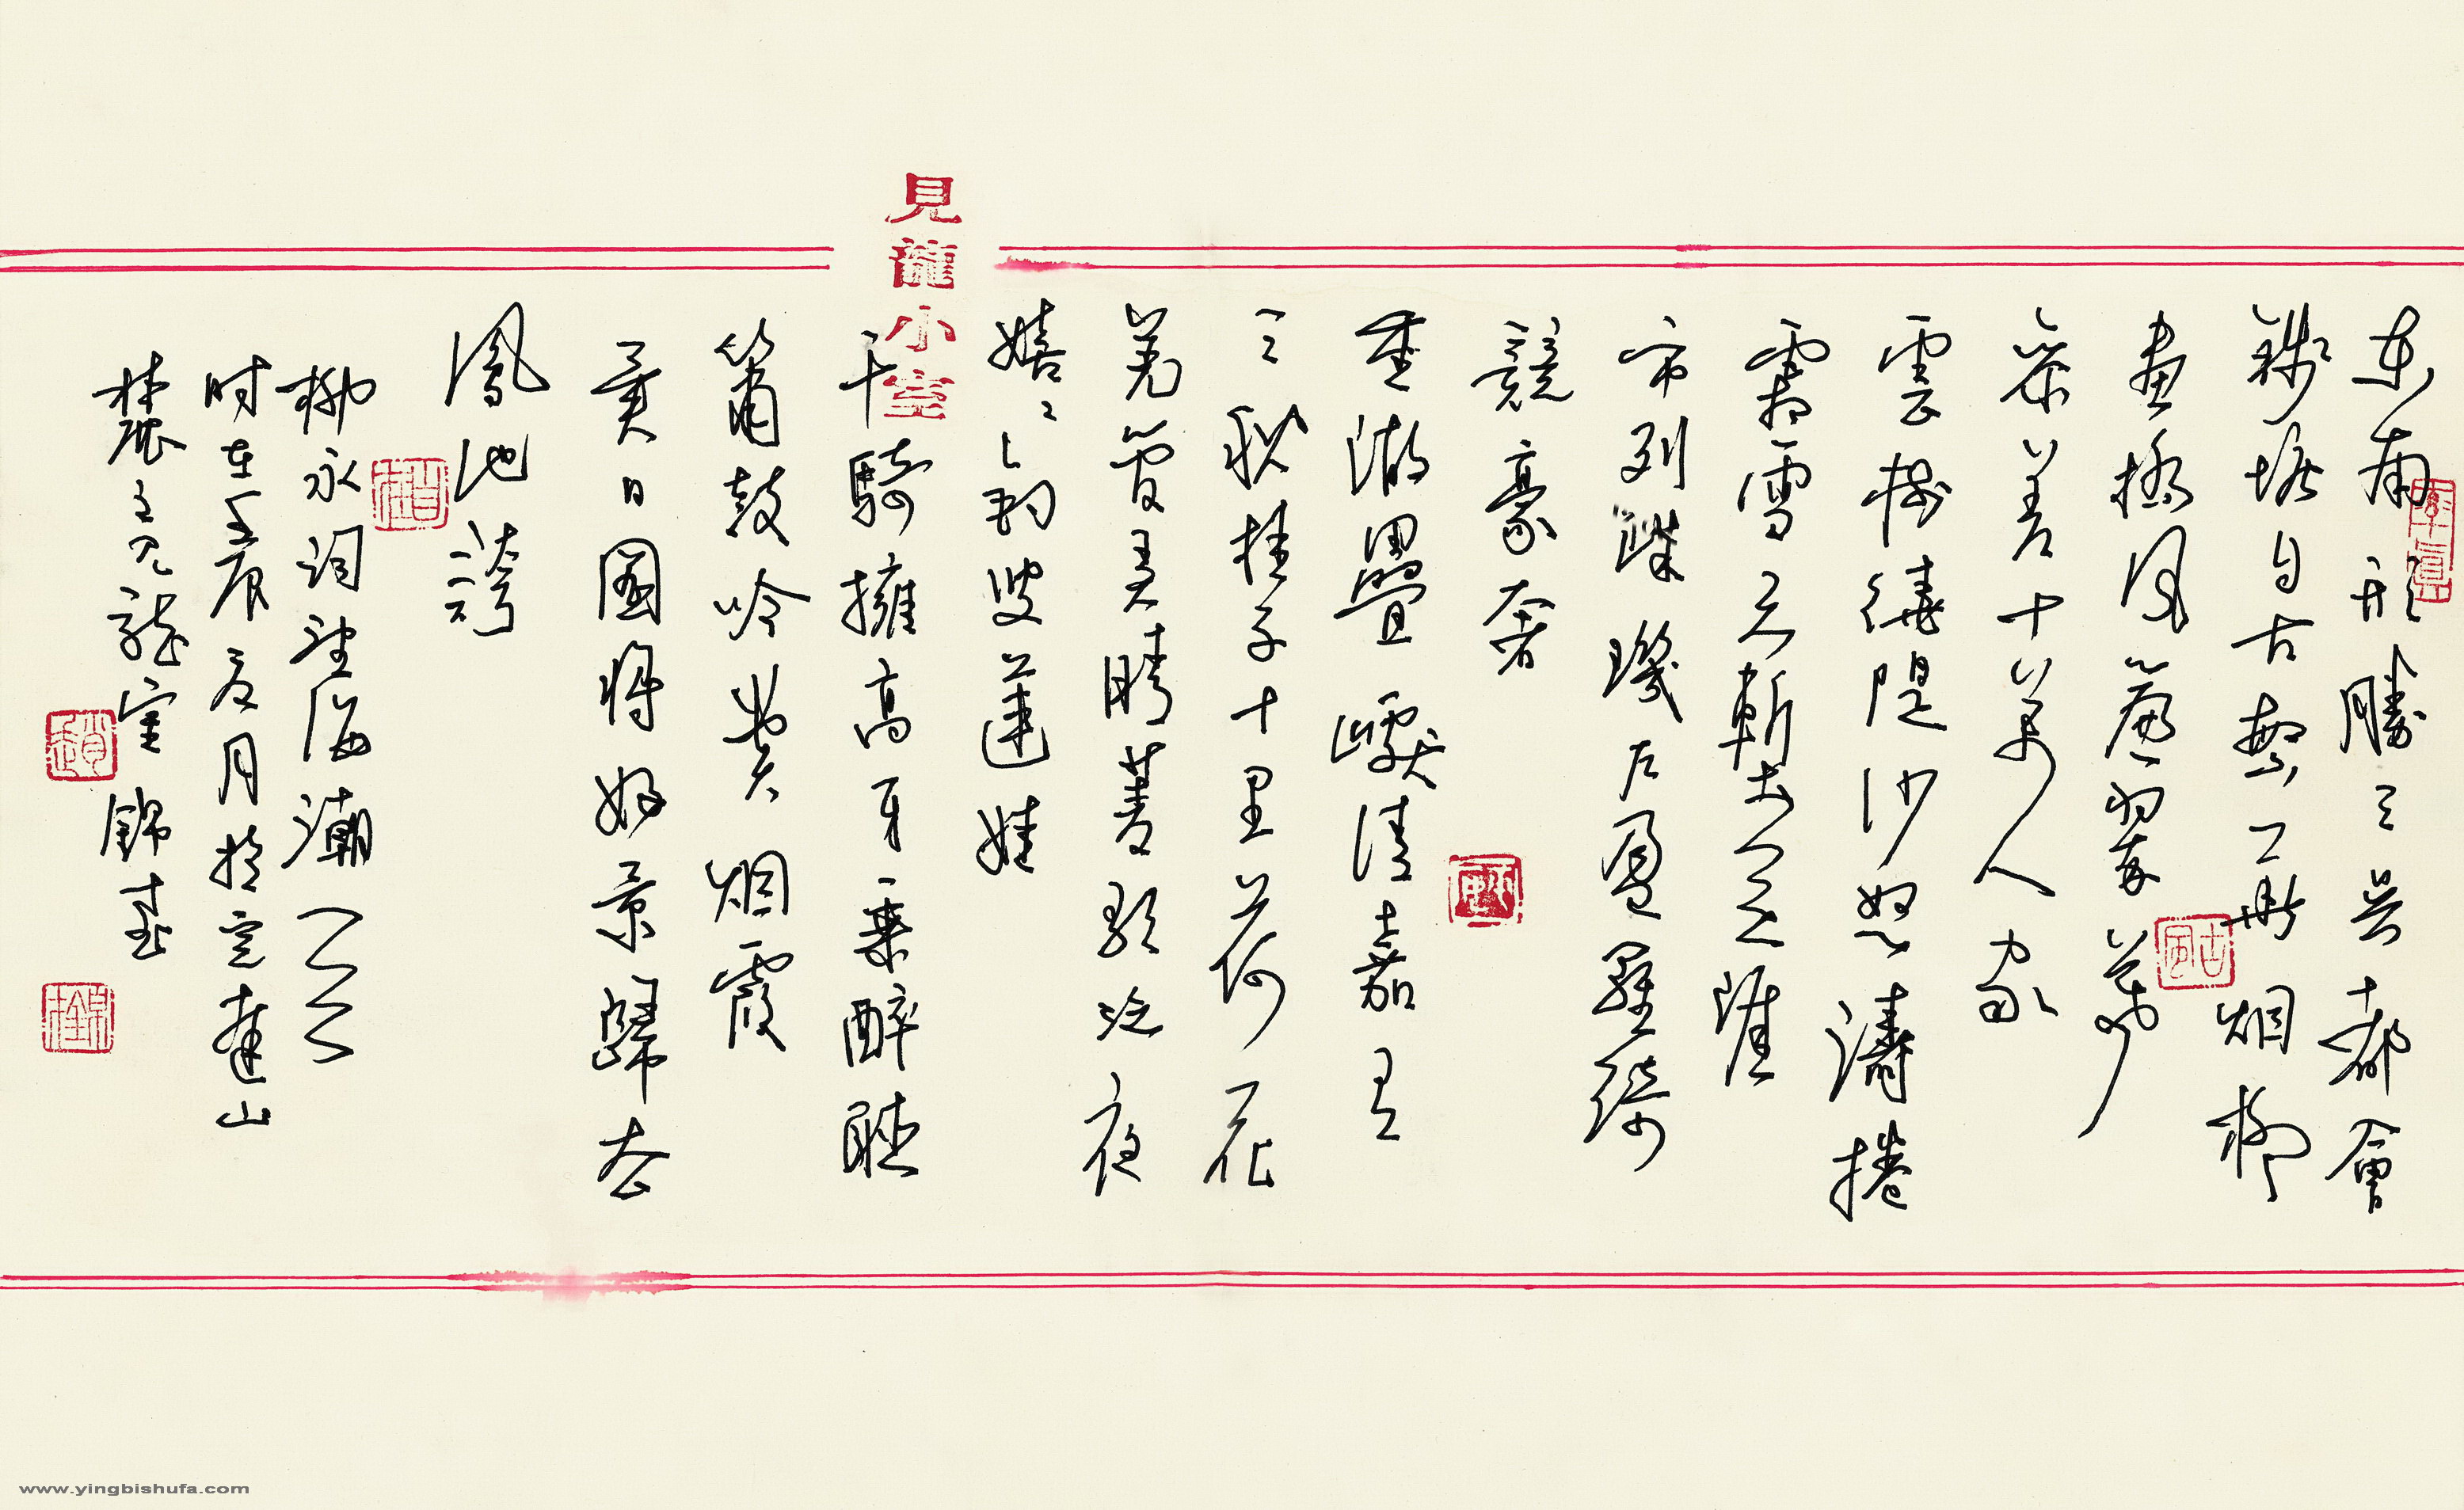 見龍小室
東南形勝三吳都會
錢塘自古繁華烟柳
畫橋風簾翠幕
參差十萬人家
雲樹繞隄沙怒濤捲
霜雪天塹無涯
市列珠璣户盈羅綺
競豪奢
重湖疊巘清嘉有
三秋桂子十里荷花
羌管弄晴菱歌泛夜
嬉嬉釣叟蓮娃
千騎擁高牙乘醉聽
簫鼓吟賞烟霞
異日圖將好景歸去
鳳池誇
柳永詞望海潮
时在壬辰夏月於山
見龍室錦
www.yingbishufa.com